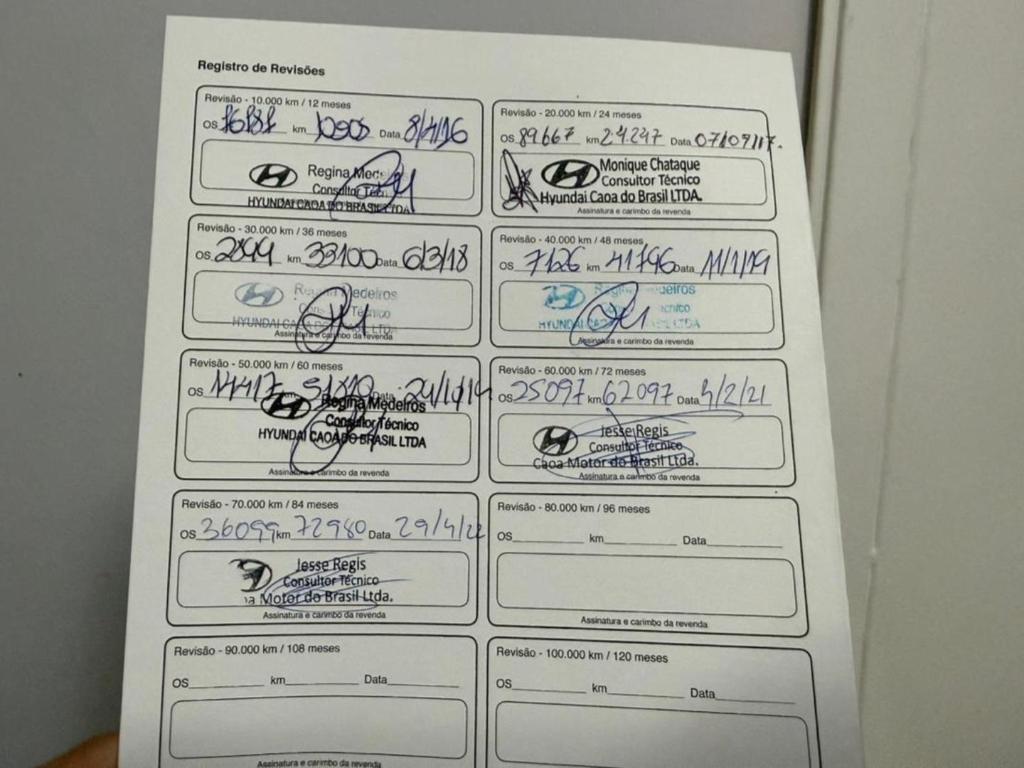 Registro de Revisões
Revisão - 10.000 km / 12 meses
OS km Data 8/4/16
Regina Medeiros
Consultor Técnico
HYUNDAI CAOA DO BRASIL LTDA
Revisão - 20.000 km / 24 meses
OS 89667 km 24.247 Data 07/07/17.
Monique Chataque
Consultor Técnico
Hyundai Caoa do Brasil LTDA.
Assinatura e carimbo da revenda
Revisão - 30.000 km / 36 meses
OS 2899 km 33100 Data 6/3/18
Regina Medeiros
Consultor Técnico
HYUNDAI CAOA DO BRASIL LTDA
Assinatura e carimbo da revenda
Revisão - 40.000 km / 48 meses
OS 7126 km 41796 Data 11/1/19
Regina Medeiros
Consultor Técnico
HYUNDAI CAOA DO BRASIL LTDA
Assinatura e carimbo da revenda
Revisão - 50.000 km / 60 meses
OS 14417 Data
Regina Medeiros
Consultor Técnico
HYUNDAI CAOA DO BRASIL LTDA
Assinatura e carimbo da revenda
Revisão - 60.000 km / 72 meses
OS 25097 km 62097 Data 4/2/21
Jesse Regis
Consultor Técnico
Caoa Motor do Brasil Ltda.
Assinatura e carimbo da revenda
Revisão - 70.000 km / 84 meses
OS 36099 km 72980 Data 29/4/22
Jesse Regis
Consultor Técnico
a Motor do Brasil Ltda.
Assinatura e carimbo da revenda
Revisão - 80.000 km / 96 meses
OS km Data
Assinatura e carimbo da revenda
Revisão - 90.000 km / 108 meses
OS km Data
Assinatura e carimbo da revenda
Revisão - 100.000 km / 120 meses
OS km Data